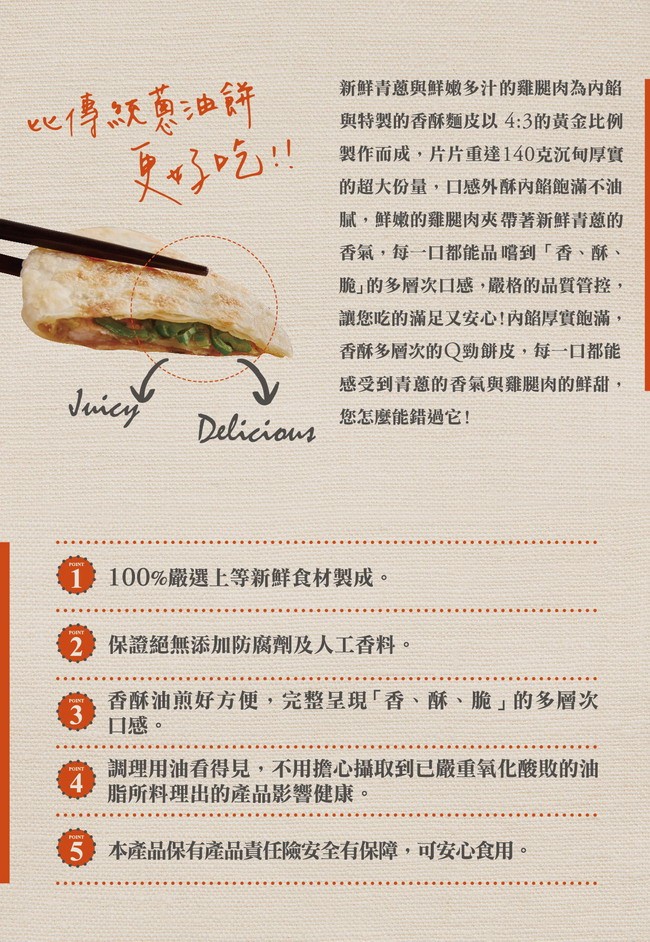 比傳統蔥油餅
更好吃!!
Juicy
Delicious
新鮮青蔥與鮮嫩多汁的雞腿肉為內餡
與特製的香酥麵皮以 4:3的黃金比例
製作而成，片片重達140克沉甸厚實
的超大份量，口感外酥內餡飽滿不油
膩，鮮嫩的雞腿肉夾帶著新鮮青蔥的
香氣，每一口都能品嚐到「香、酥、
脆」的多層次口感，嚴格的品質管控，
讓您吃的滿足又安心!內餡厚實飽滿，
香酥多層次的Q勁餅皮，每一口都能
感受到青蔥的香氣與雞腿肉的鮮甜，
您怎麼能錯過它!
POINT
1
100%嚴選上等新鮮食材製成。
POINT
2
保證絕無添加防腐劑及人工香料。
POINT
3
香酥油煎好方便，完整呈現「香、酥、脆」的多層次
口感。
POINT
4
調理用油看得見，不用擔心攝取到已嚴重氧化酸敗的油
脂所料理出的產品影響健康。
POINT
5
本產品保有產品責任險安全有保障，可安心食用。